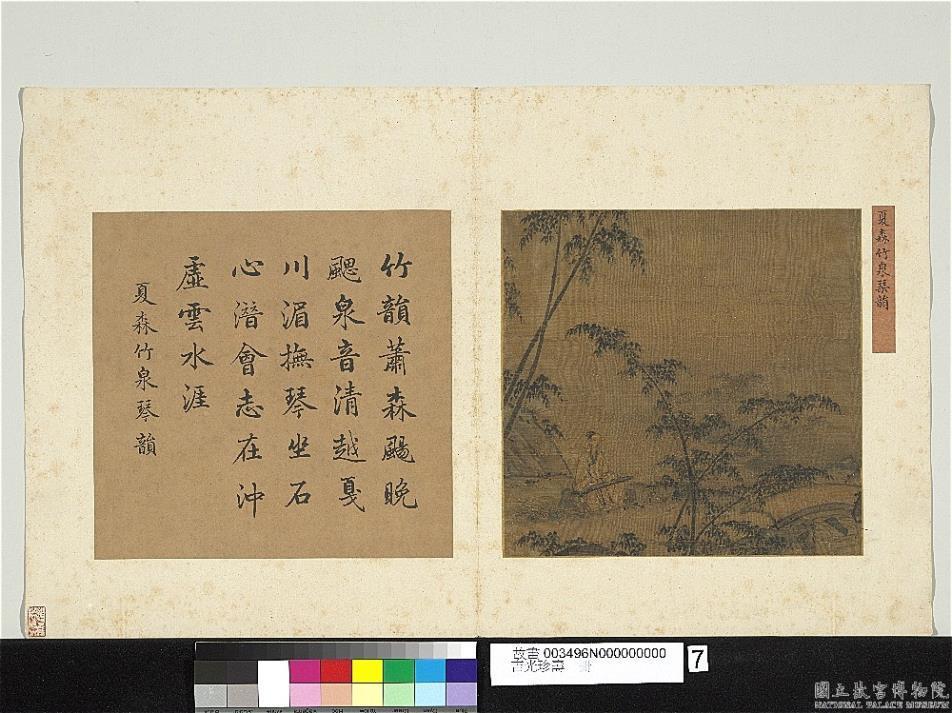 夏森竹泉琴韻
竹韻蕭森颺晚
颸泉音清越戛
川湄撫琴坐石
心潛會志在沖
虛雲水涯
夏森竹泉琴韻
故畫 003496N000000000
吉光珍壽 冊
7
國立故宮博物院
NATIONAL PALACE MUSEUM